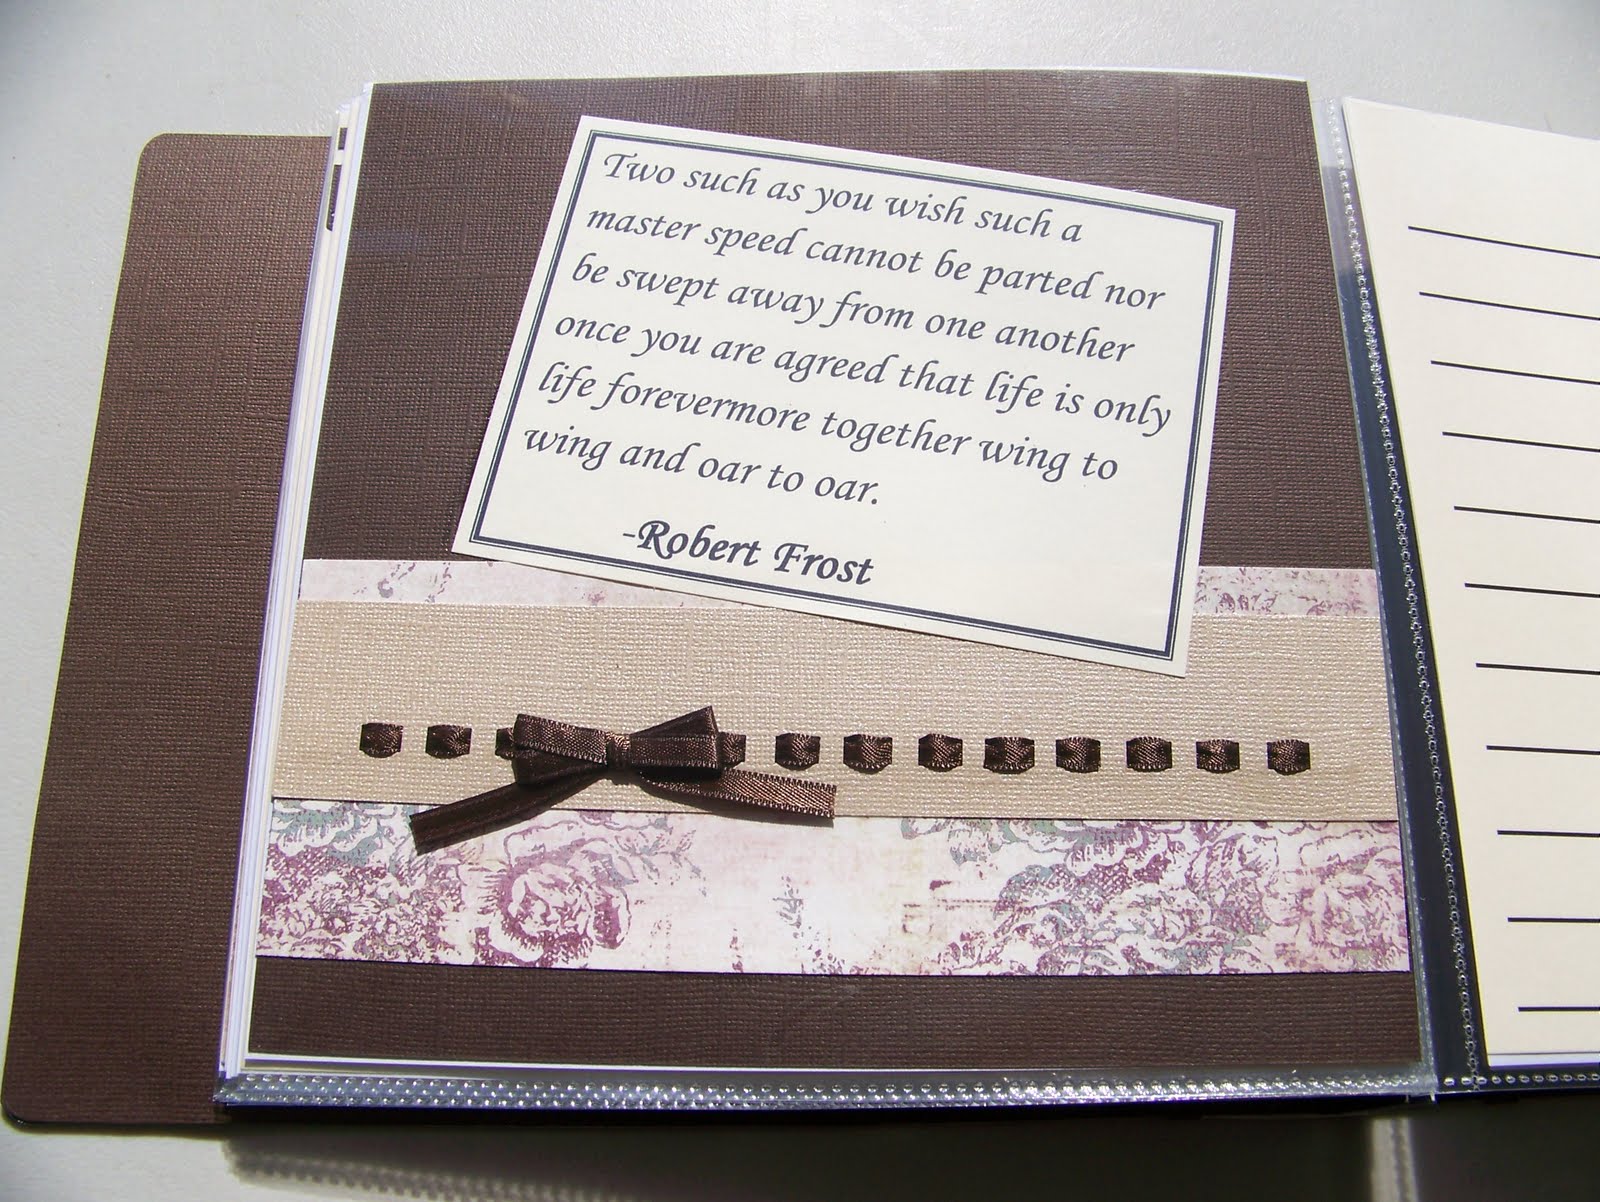 Two such as you wish such a
master speed cannot be parted nor
be swept away from one another
once you are agreed that life is only
life forevermore together wing to
wing and oar to oar.
-Robert Frost